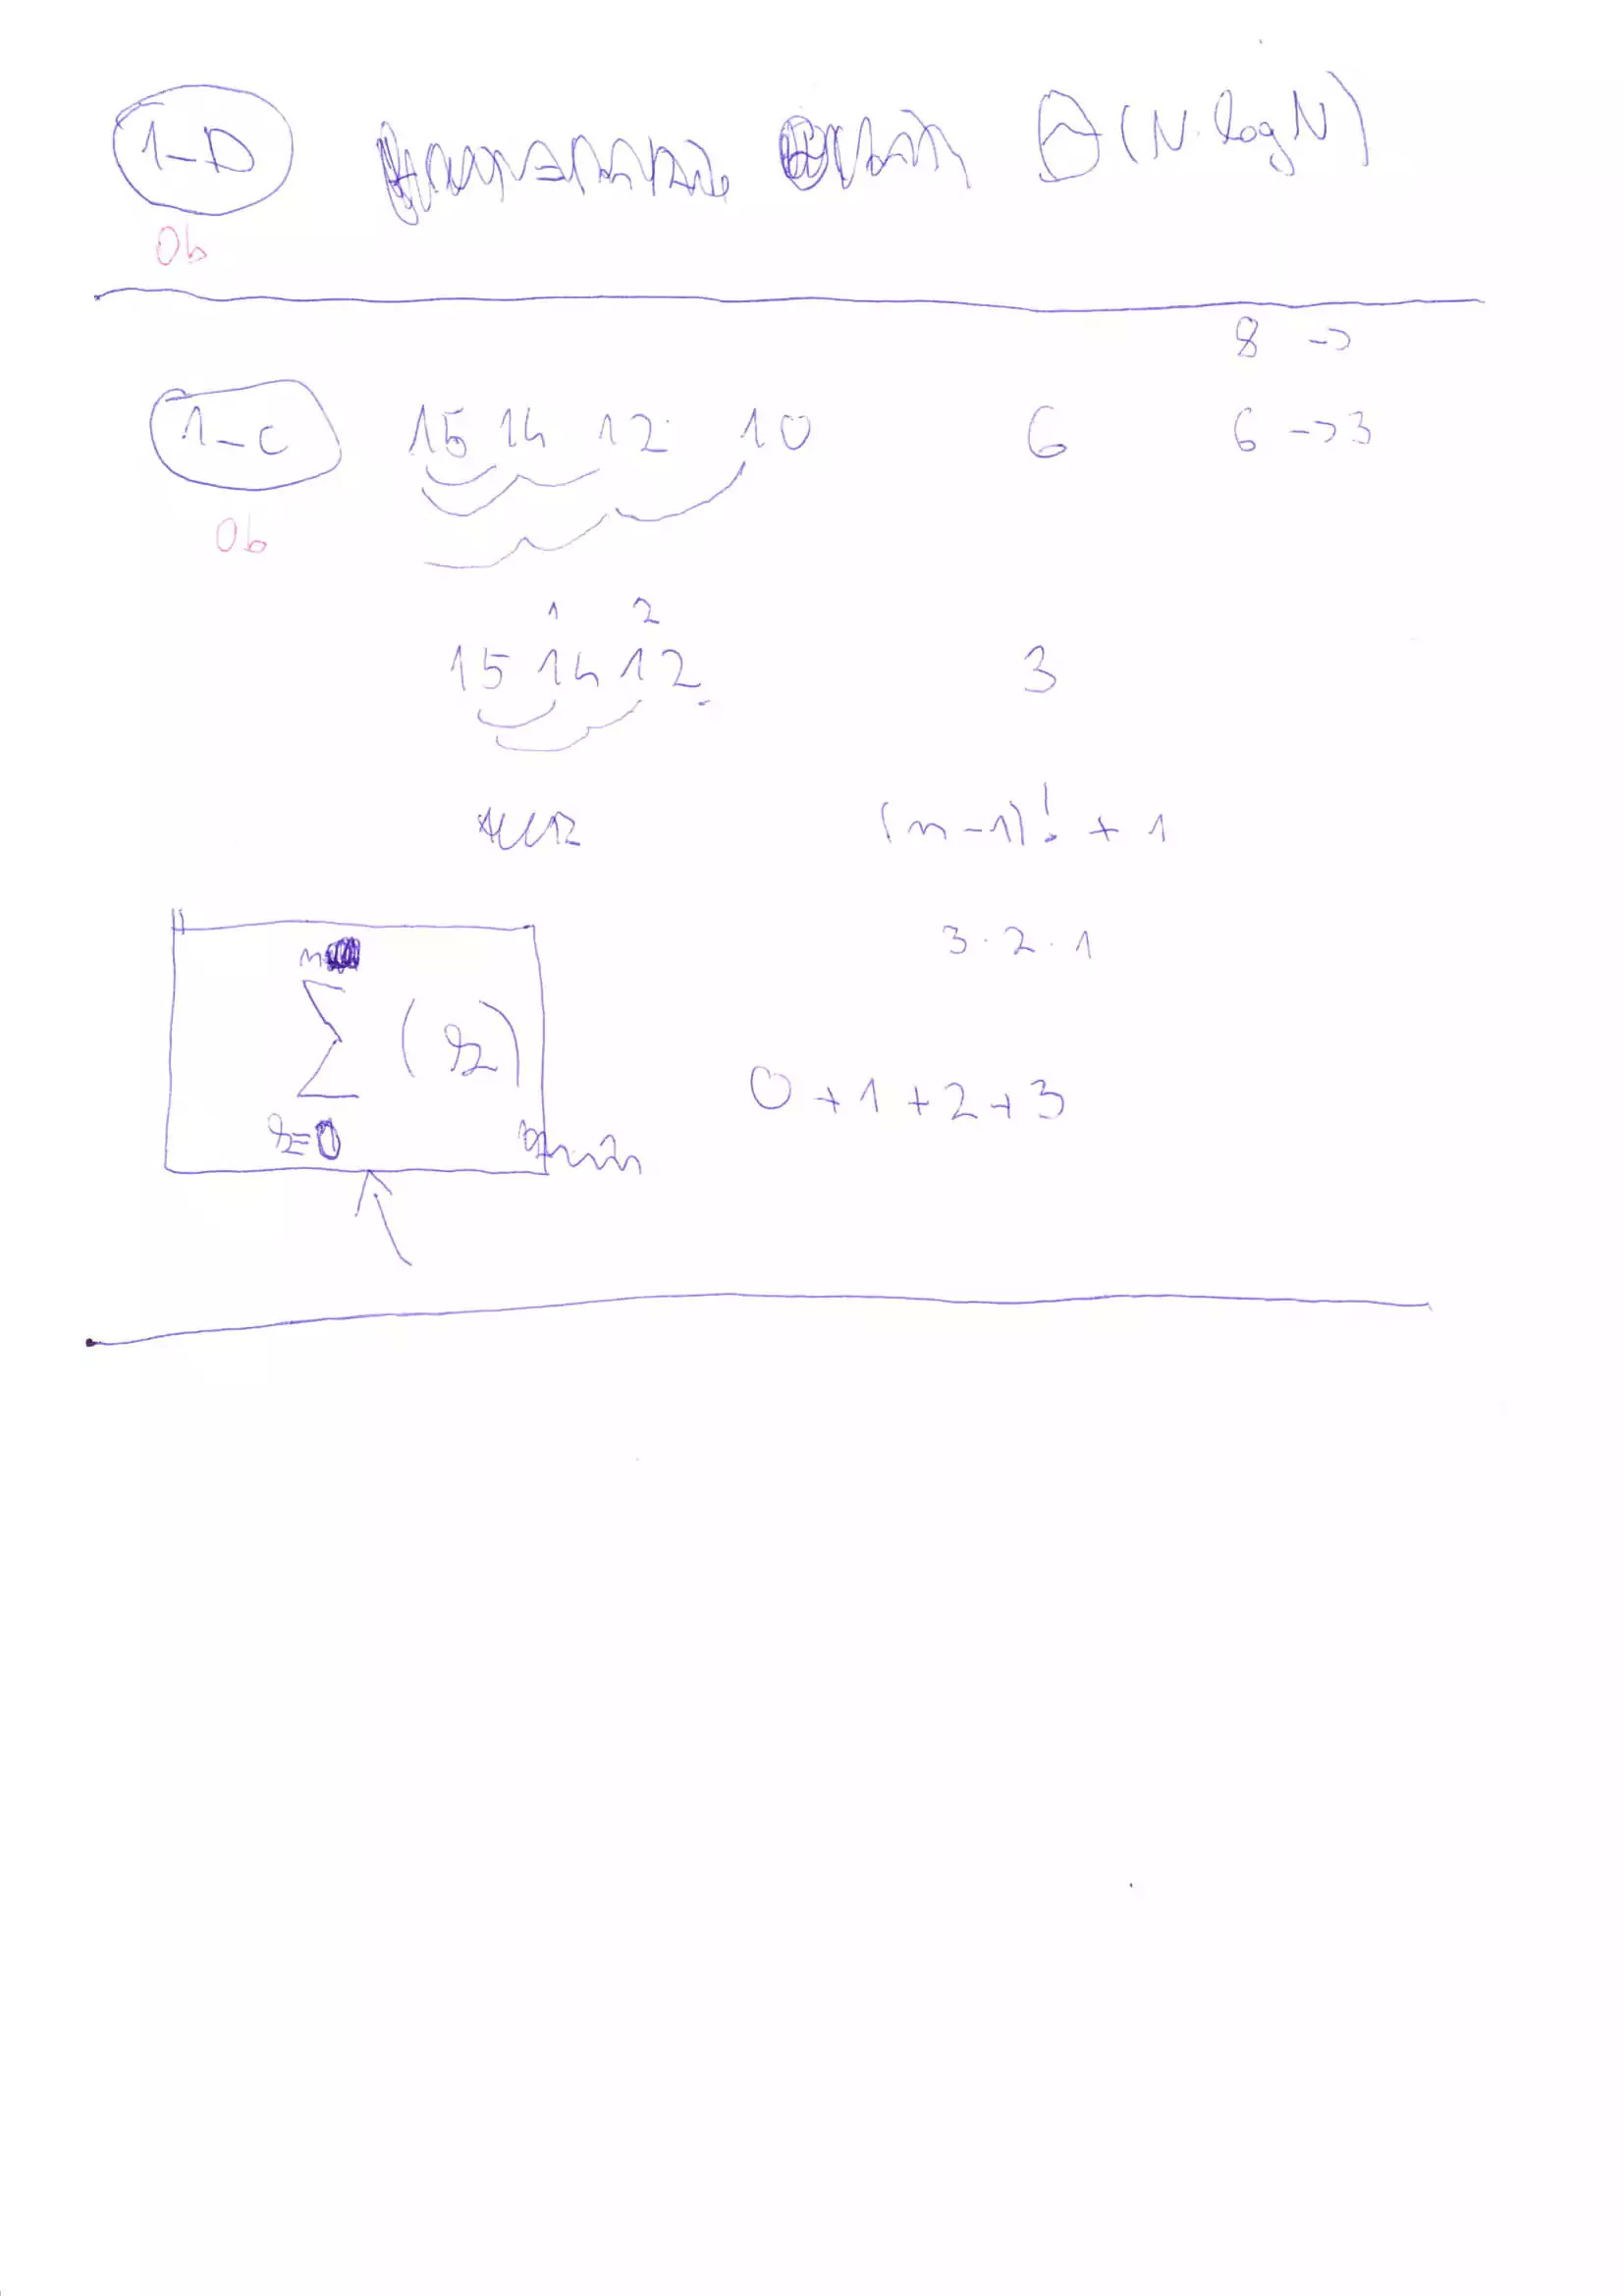 1-D Θ(N·logN)
0b
8 ->
1-c 15 14 12 10 6 6 -> 3
0b
1 2
15 14 12 3
(n-1)! + 1
3·2·1
n
∑ (k)
k=0
0+1+2+3